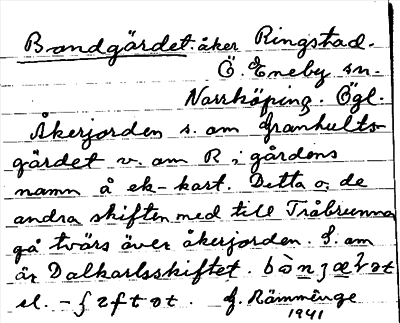 Bondgärdet. åker Ringstad.
Ö. Eneby sn.
Norrköping. Ögl.
Åkerjorden s. om Granhults-
gärdet v. om R i gårdens
namn å ek-kart. Detta o. de
andra skiften med till Tråbrunna
gå tvärs över åkerjorden. S. om
är Dalkarlsskiftet.
el.
1941